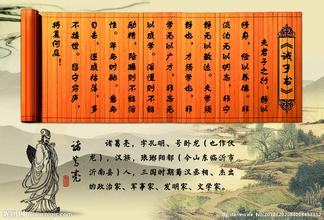 诫子书
夫君子之行，静以
修身，俭以养德。非
淡泊无以明志，非宁
静无以致远。夫学须
静也，才须学也。非
学无以广才，非志无
以成学。淫慢则不能
励精，险躁则不能治
性。年与时驰，意与
日去，遂成枯落，多
不接世。悲守穷庐，
将复何及！
诸葛亮
诸葛亮，字孔明、号卧龙（也作伏
龙），汉族，琅琊阳都（今山东临沂市
沂南县）人，三国时期蜀汉丞相、杰出
的政治家、军事家、发明家、文学家。